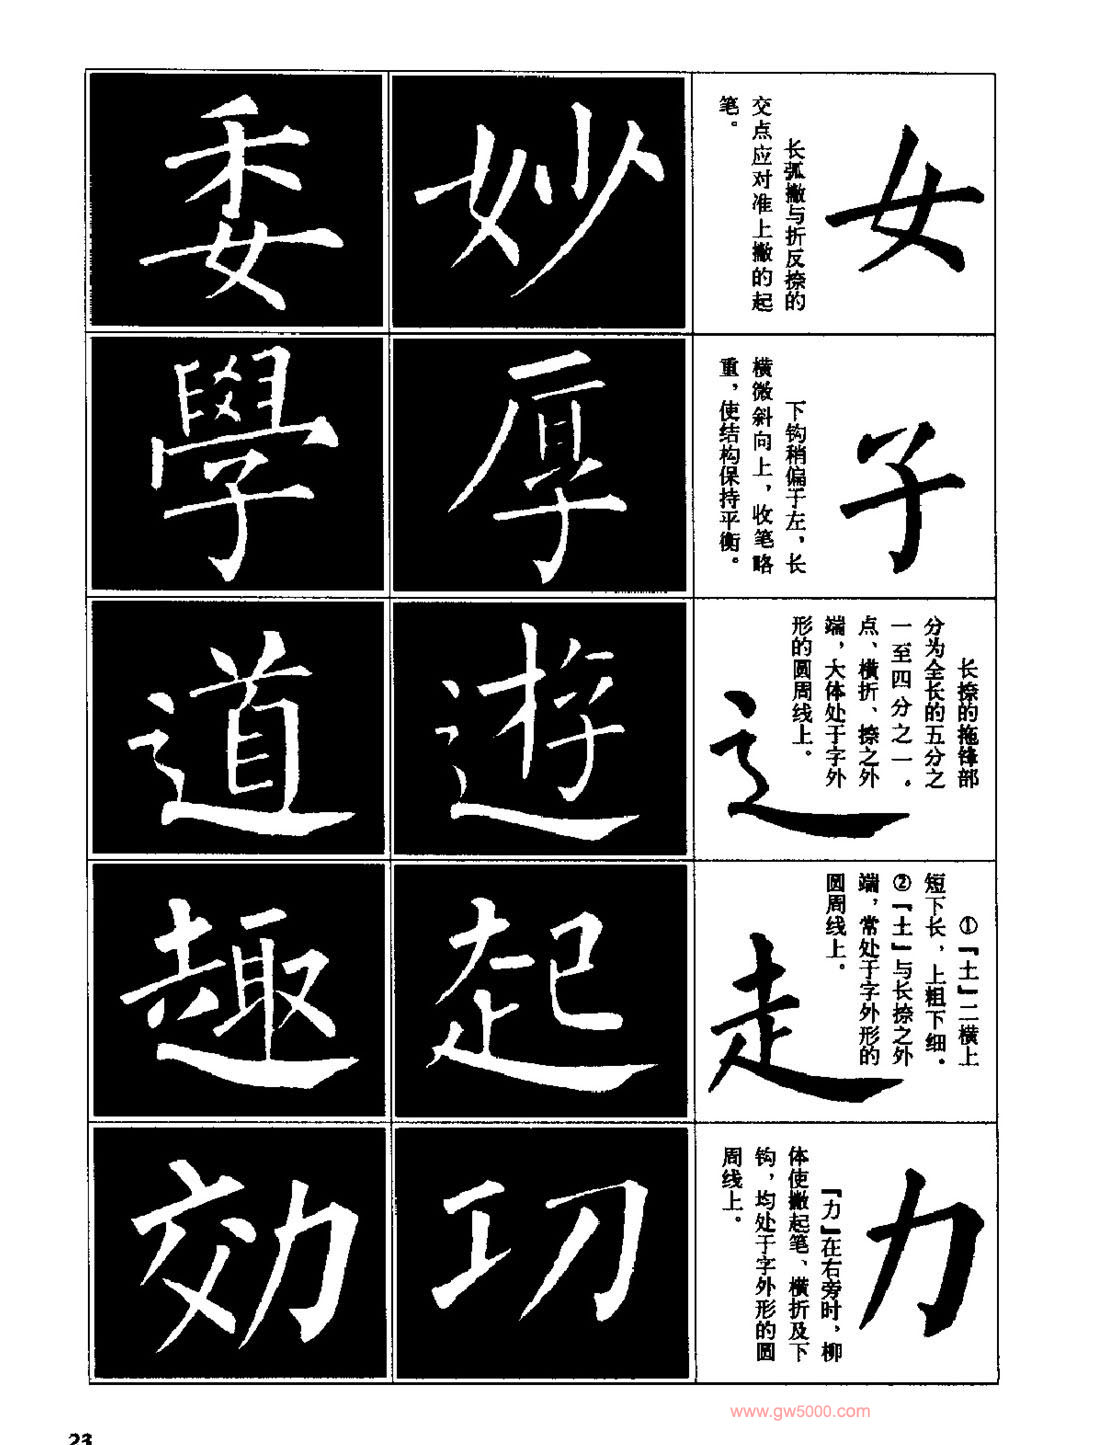 女
长弧撇与折反捺的
交点应对准上撇的起
笔。
妙
委
子
下钩稍偏于左，长
横微斜向上，收笔略
重，使结构保持平衡。
厚
學
辶
长捺的拖锋部
分为全长的五分之
一至四分之一。
点、横折、捺之外
端，大体处于字外
形的圆周线上。
遊
道
走
①『土』二横上
短下长，上粗下细．
②『土』与长捺之外
端，常处于字外形的
圆周线上。
起
趣
力
『力』在右旁时，柳
体使撇起笔、横折及下
钩，均处于字外形的圆
周线上。
功
効
www.gw5000.com
23